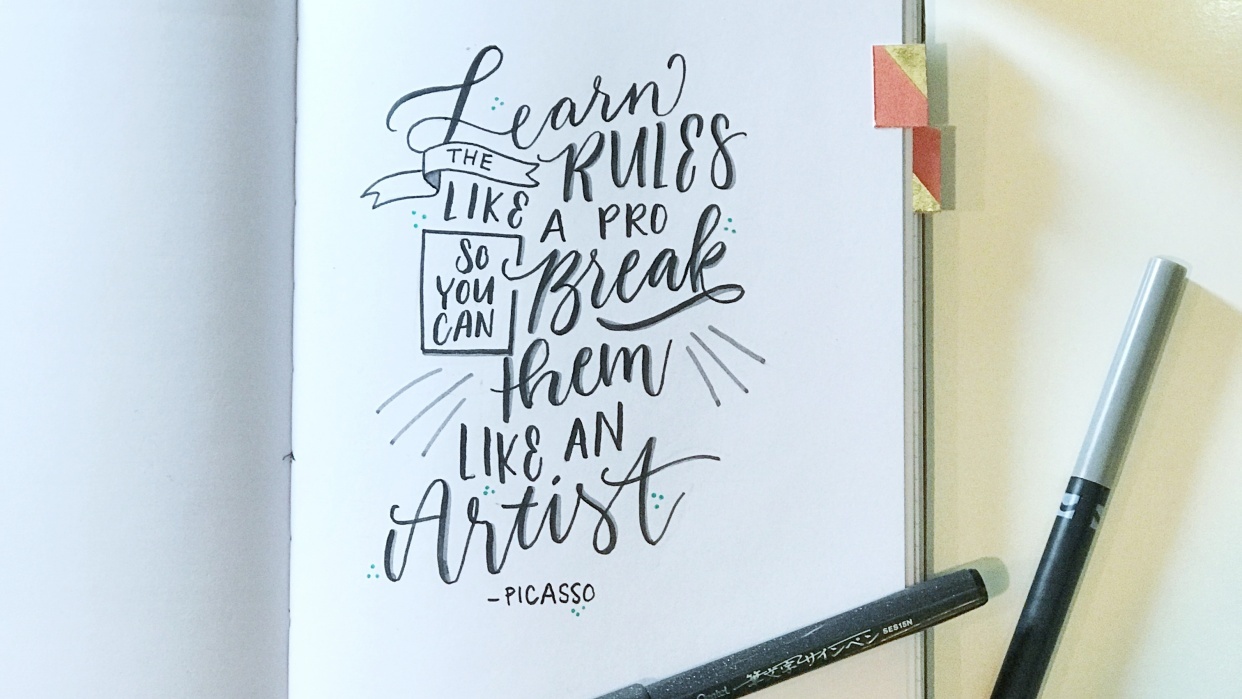 Learn
THE RULES
LIKE A PRO
SO
YOU
CAN
Break
them
LIKE AN
Artist
-PICASSO
Pentel 筆文字サインペン SES15N